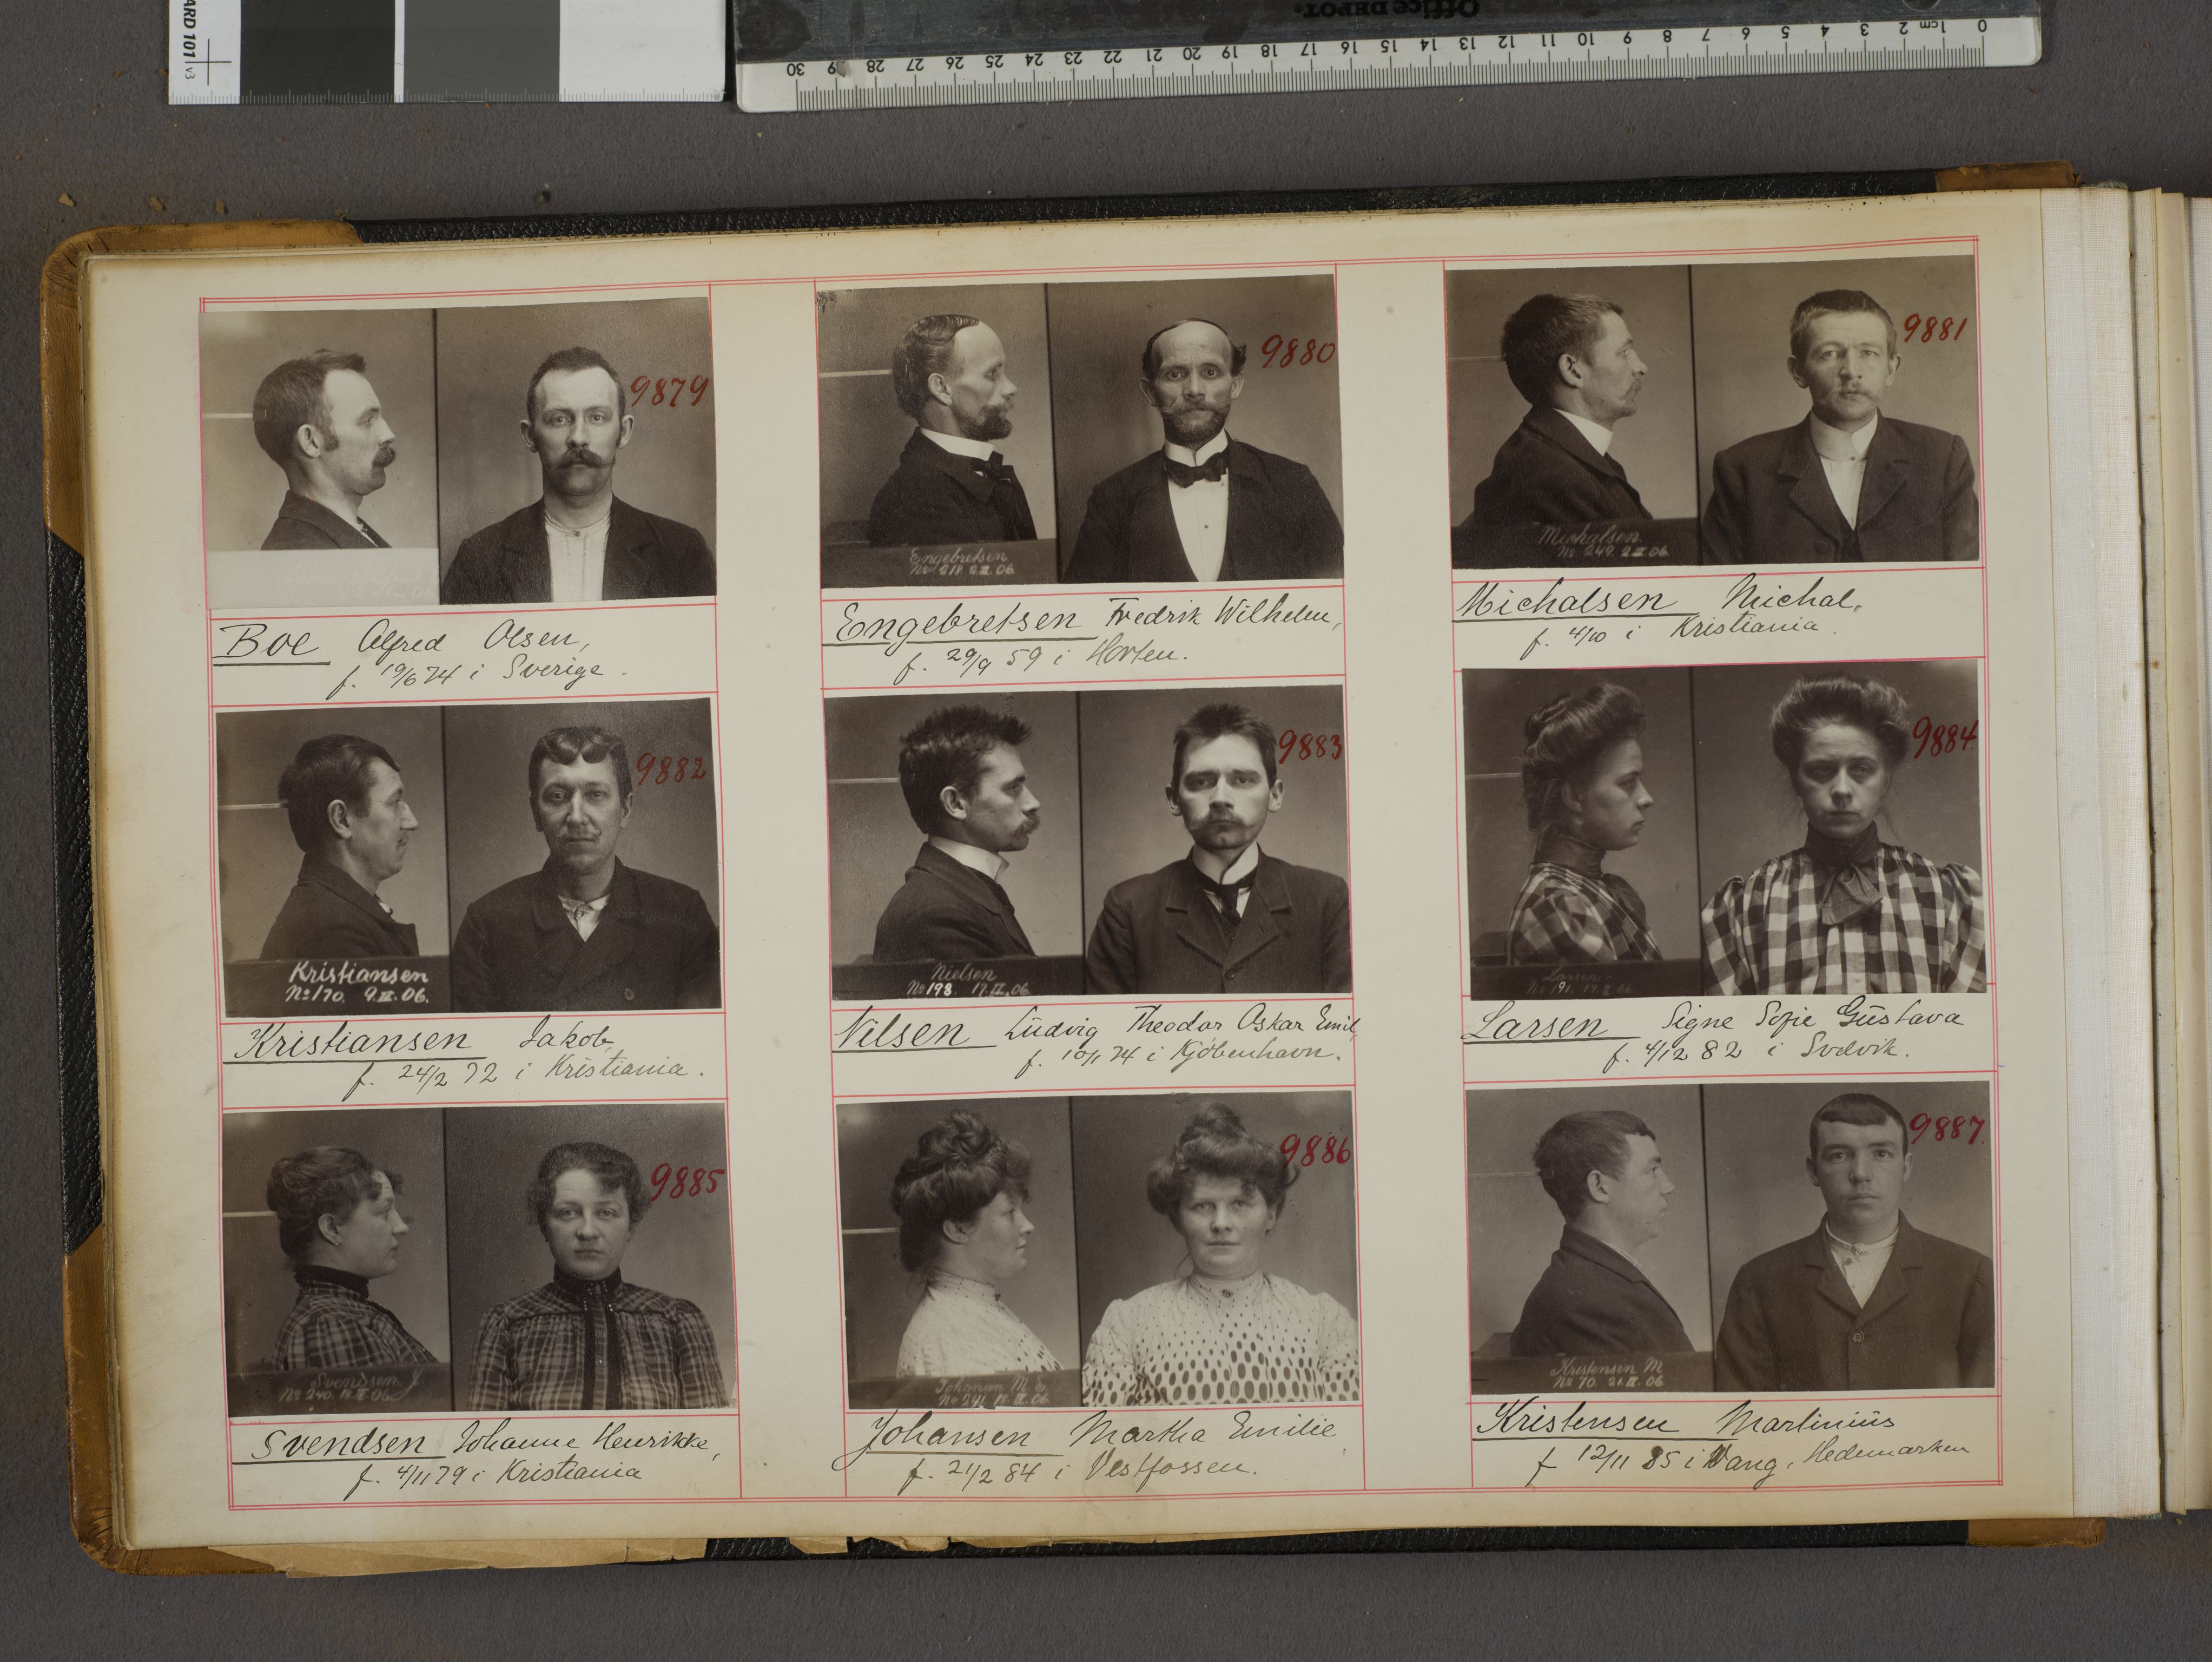 ARD 101 v3
Office DEPOT
0 1cm 2 3 4 5 6 7 8 9 10 11 12 13 14 15 16 17 18 19 20 21 22 23 24 25 26 27 28 9 30
9879
Boe Alfred Olsen,
f. 19/6 74 i Sverige.
9880
Engebretsen
No 218. 2.III.06.
Engebretsen Fredrik Wilhelm,
f. 29/9 59 i Horten.
9881
Michalsen
No 249. 2.III.06.
Michalsen Michal,
f. 4/10 i Kristiania.
9882
Kristiansen
No 170. 9.II.06.
Kristiansen Jakob,
f. 24/2 72 i Kristiania.
9883
Nielsen
No 198. 17.II.06.
Nilsen Ludvig Theodor Oskar Emil,
f. 10/1 74 i Kjöbenhavn.
9884
Larsen
No 191. 17.II.06
Larsen Signe Sofie Gustava
f. 4/12 82 i Svelvik.
9885
Svendsen J.
No 240. 19.II.06.
Svendsen Johanne Henrikke,
f. 4/11 79 i Kristiania
9886
Johansen M. E.
No 241.
Johansen Martha Emilie
f. 21/2 84 i Vestfossen.
9887.
Kristensen M
No 70. 21.II.06.
Kristensen Martinius
f 12/11 85 i Vang, Hedemarken